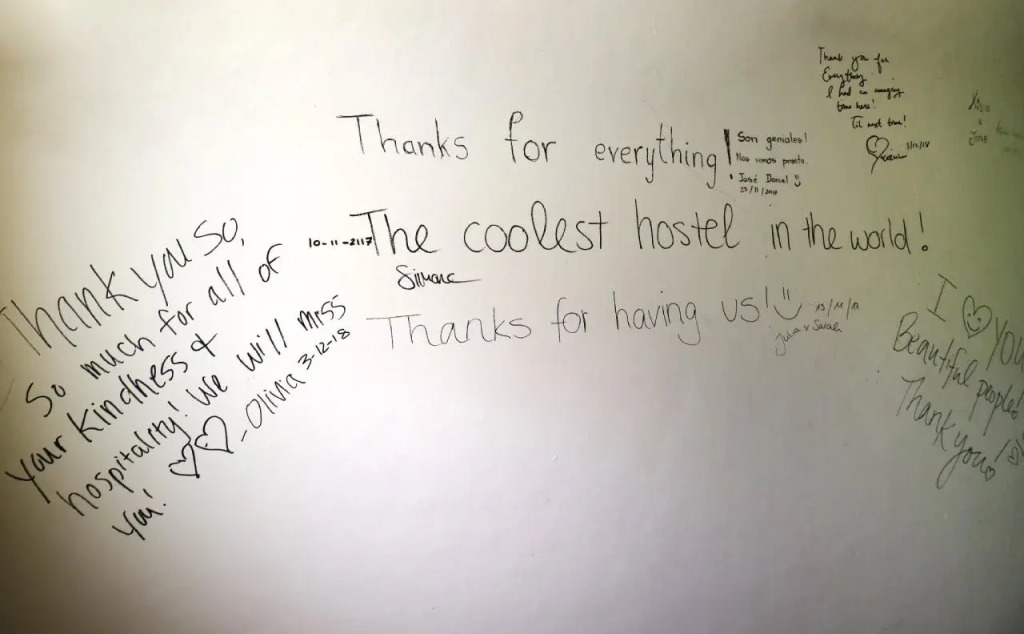 Thank you for
Everything
I had an amazing
time here!
Til next time!
Thanks for everything!
Son geniales!
Nos vemos pronto.
José Daniel
The coolest hostel in the world!
10-11-2117
Simone
Thanks for having us!
Julia & Sarah
Thank you So,
So much for all of
your kindness &
hospitality! We will miss
you!
-Olivia 3-12-18
I YOU
Beautiful people!
Thank you!